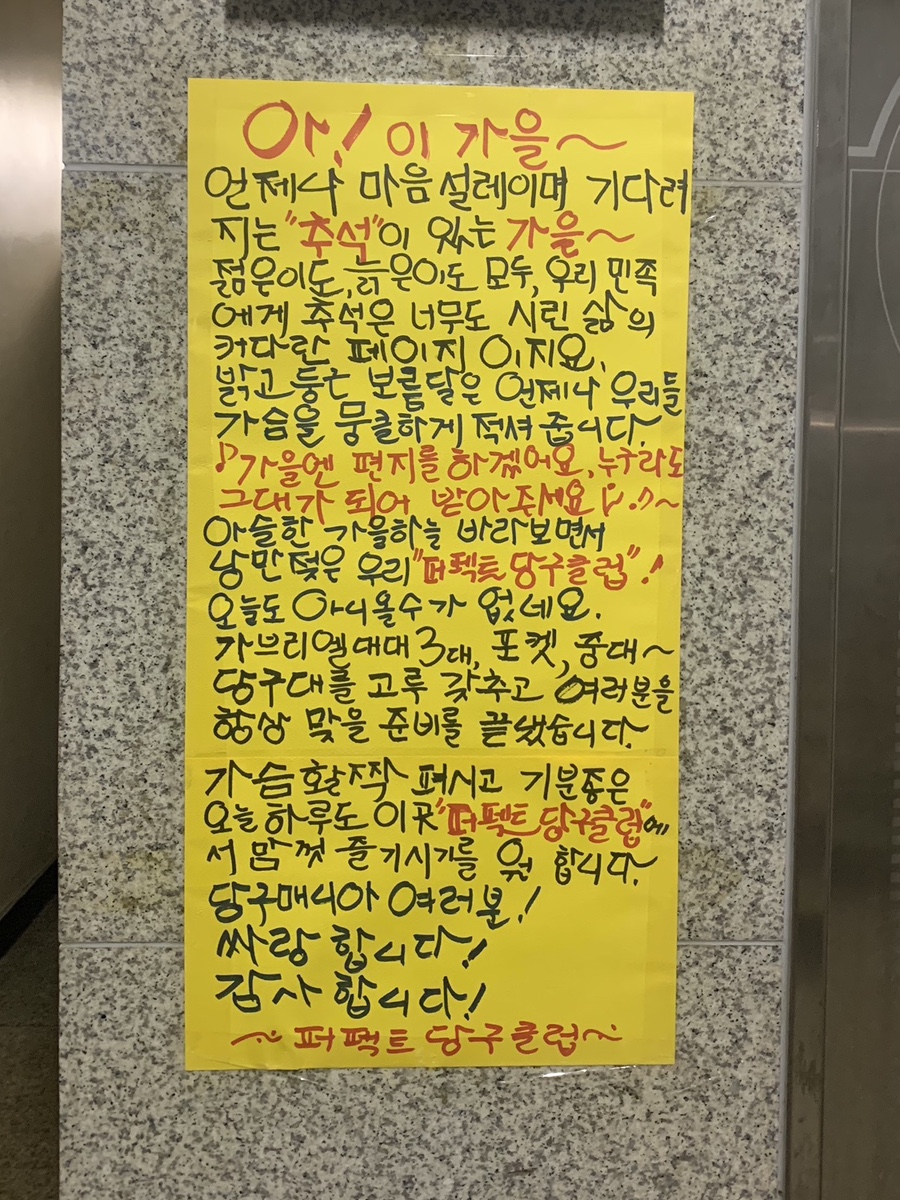 아! 이 가을~
언제나 마음설레이며 기다려
지는 "추석"이 있는 가을~
젊은이도, 늙은이도 모두, 우리 민족
에게 추석은 너무도 시린 삶의
커다란 페이지 이지요.
밝고 둥근 보름달은 언제나 우리들
가슴을 뭉클하게 적셔줍니다.
♪가을엔 편지를 하겠어요, 누구라도
그대가 되어 받아주세요♪.♪~
아슬한 가을하늘 바라보면서
낭만젖은 우리 "퍼펙트 당구클럽"!
오늘도 아니올수가 없네요.
가브리엘대대 3대, 포켓, 중대~
당구대를 고루 갖추고 여러분을
항상 맞을 준비를 끝냈습니다.
가슴활짝 펴시고 기분좋은
오늘하루도 이곳 "퍼펙트 당구클럽"에
서 맘껏 즐기시기를 원 합니다.
당구매니아 여러분!
싸랑합니다!
감사합니다!
~퍼펙트 당구클럽~